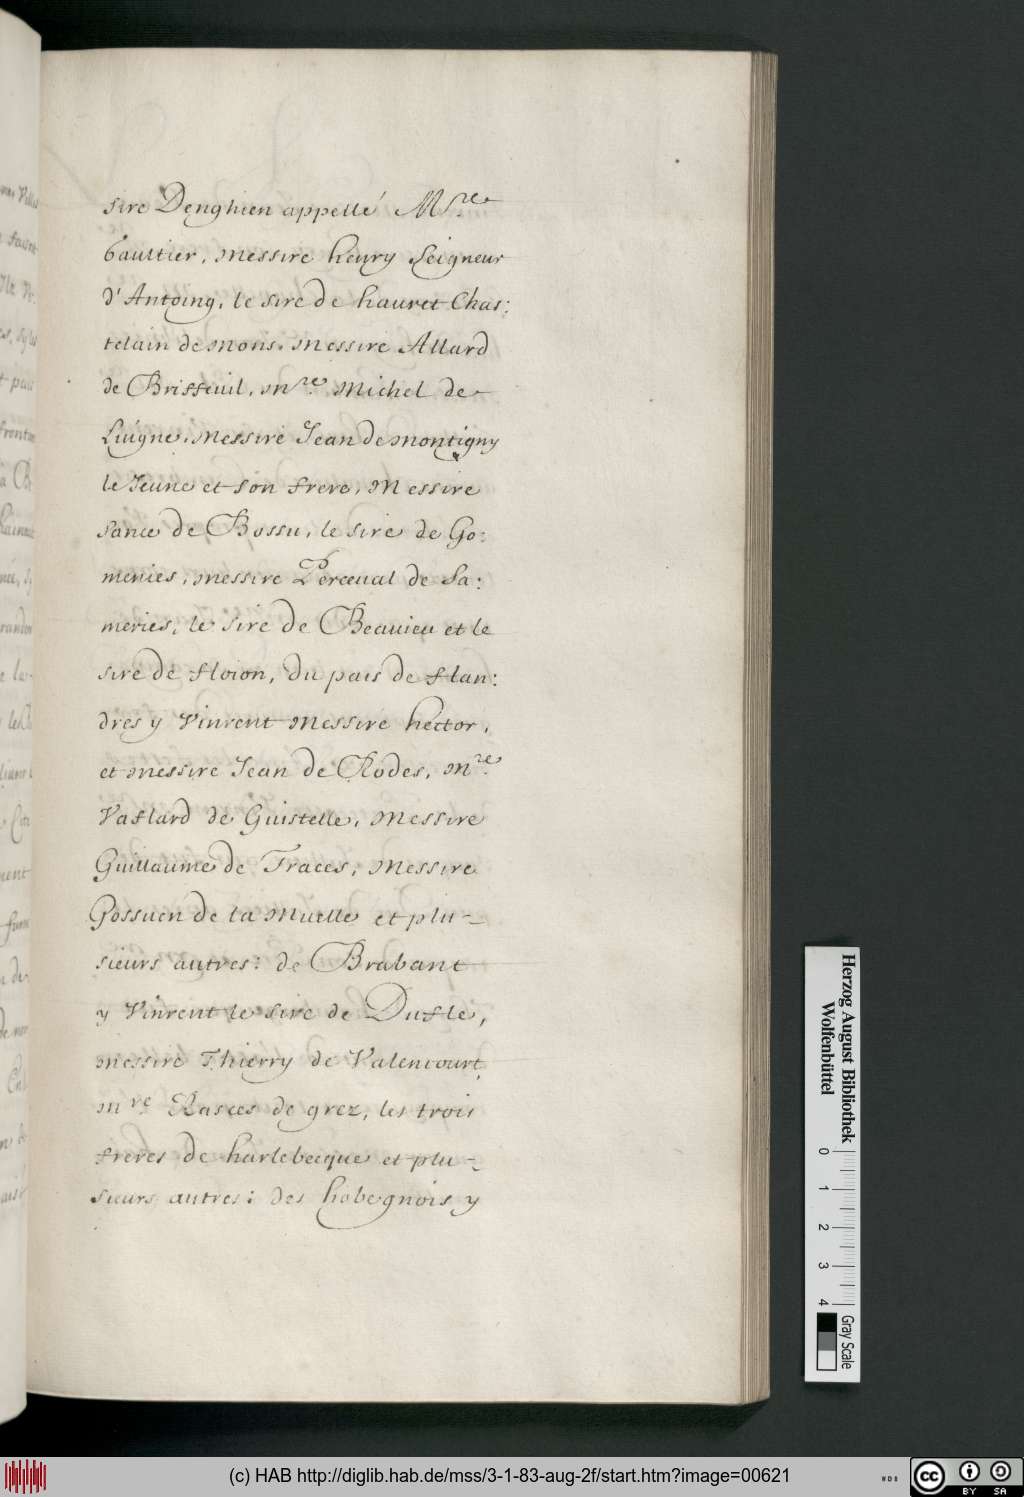 sire Denghien appellé M.re
Gaultier, messire henry Seigneur
d'Antoing, le sire de hauret Chas:
telain de mons. messire Allard
de Brisseuil, m.re Michel de
Luigne, Messire Jean de montigny
le Jeune et son frere, Messire
sance de Bossu, le sire de Go:
menies, messire Perceual de Sa:
meries, le sire de Beauieu et le
sire de floion, du pais de flan:
dres y Vinrent Messire hector,
et messire Jean de Rodes, m.re
Vaflard de Guistelle, Messire
Guillaume de Traces, Messire
Gossuen de la Muelle et plu-
sieurs autres: de Brabant
y Vinrent le sire de Dufle,
messire Thierry de Valencourt
m.re Rasces de grez, les trois
freres de harlebecque et plu-
sieurs autres: des hobegnois y
Herzog August Bibliothek
Wolfenbüttel
0 1 2 3 4
Gray Scale
(c) HAB http://diglib.hab.de/mss/3-1-83-aug-2f/start.htm?image=00621
WDB
cc BY SA